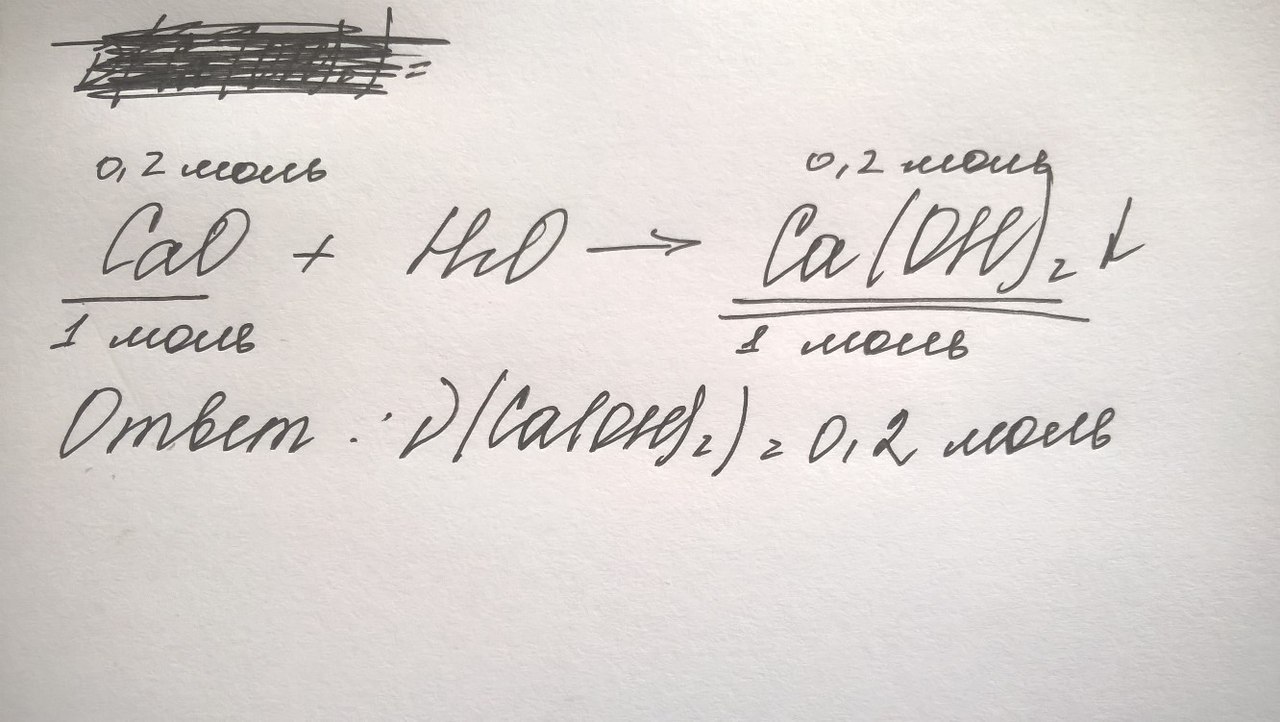 0,2 моль 0,2 моль
CaO + H₂O → Ca(OH)₂ ↓
1 моль 1 моль
Ответ : ν(Ca(OH)₂) = 0,2 моль